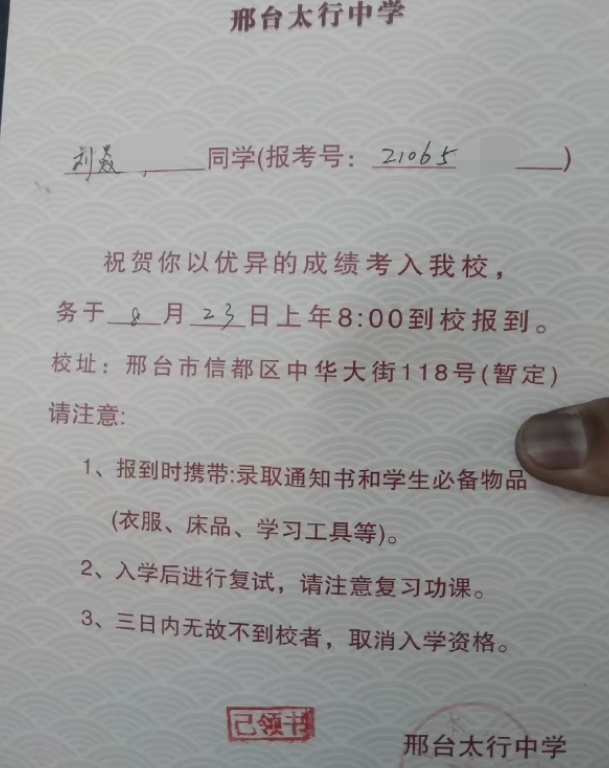 邢台太行中学
刘 同学(报考号: 21065 )
祝贺你以优异的成绩考入我校,
务于 8 月 23 日上年8:00到校报到。
校址: 邢台市信都区中华大街118号(暂定)
请注意:
1、报到时携带:录取通知书和学生必备物品
(衣服、床品、学习工具等)。
2、入学后进行复试，请注意复习功课。
3、三日内无故不到校者，取消入学资格。
已领书
邢台太行中学